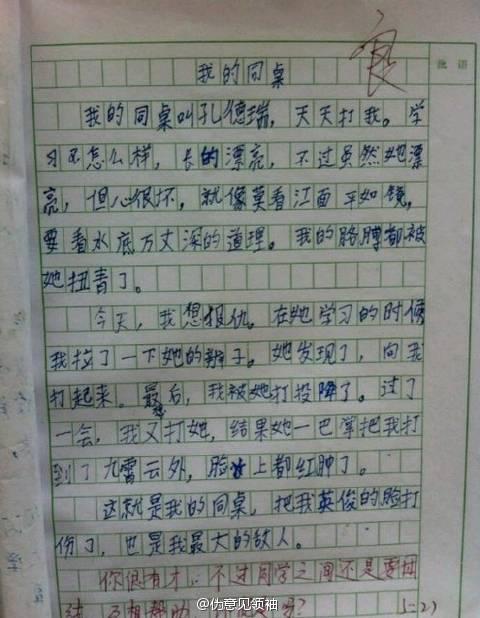 良
批语
我的同桌
我的同桌叫孔德瑞，天天打我。学
习不怎么样，长的漂亮，不过虽然她漂
亮，但心很坏，就像莫看江面平如镜，
要看水底万丈深的道理。我的胳膊都被
她扭青了。
今天，我想报仇。在她学习的时候
我拉了一下她的辫子。她发现了，向我
打起来。最后，我被她打投降了。过了
一会，我又打她，结果她一巴掌把我打
到了九霄云外，脸上都红肿了。
这就是我的同桌，把我英俊的脸打
伤了，也是我最大的敌人。
你很有才，不过同学之间还是要团
结 互相帮助 吗？
@伪意见领袖